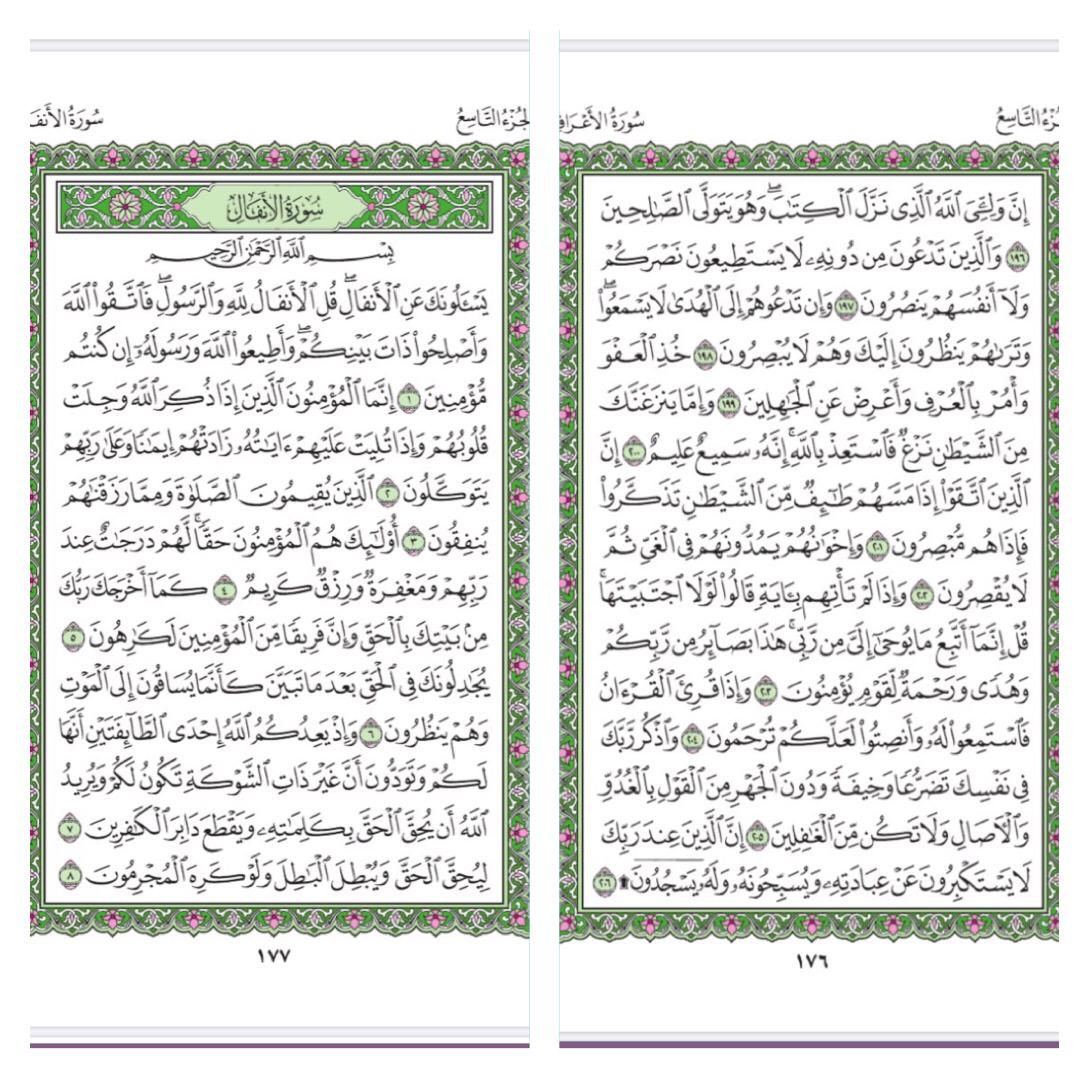 الجُزْءُ التَّاسِعُ سُورَةُ الأَعْرَافِ
إِنَّ وَلِـِّۧيَ ٱللَّهُ ٱلَّذِي نَزَّلَ ٱلْكِتَٰبَۖ وَهُوَ يَتَوَلَّى ٱلصَّٰلِحِينَ
١٩٦ وَٱلَّذِينَ تَدْعُونَ مِن دُونِهِۦ لَا يَسْتَطِيعُونَ نَصْرَكُمْ
وَلَآ أَنفُسَهُمْ يَنصُرُونَ ١٩٧ وَإِن تَدْعُوهُمْ إِلَى ٱلْهُدَىٰ لَا يَسْمَعُوا۟ۖ
وَتَرَىٰهُمْ يَنظُرُونَ إِلَيْكَ وَهُمْ لَا يُبْصِرُونَ ١٩٨ خُذِ ٱلْعَفْوَ
وَأْمُرْ بِٱلْعُرْفِ وَأَعْرِضْ عَنِ ٱلْجَٰهِلِينَ ١٩٩ وَإِمَّا يَنزَغَنَّكَ
مِنَ ٱلشَّيْطَٰنِ نَزْغٌ فَٱسْتَعِذْ بِٱللَّهِۚ إِنَّهُۥ سَمِيعٌ عَلِيمٌ ٢٠٠ إِنَّ
ٱلَّذِينَ ٱتَّقَوْا۟ إِذَا مَسَّهُمْ طَٰٓئِفٌ مِّنَ ٱلشَّيْطَٰنِ تَذَكَّرُوا۟
فَإِذَا هُم مُّبْصِرُونَ ٢٠١ وَإِخْوَٰنُهُمْ يَمُدُّونَهُمْ فِي ٱلْغَيِّ ثُمَّ
لَا يُقْصِرُونَ ٢٠٢ وَإِذَا لَمْ تَأْتِهِم بِـَٔايَةٍ قَالُوا۟ لَوْلَا ٱجْتَبَيْتَهَاۚ
قُلْ إِنَّمَآ أَتَّبِعُ مَا يُوحَىٰٓ إِلَيَّ مِن رَّبِّيۚ هَٰذَا بَصَآئِرُ مِن رَّبِّكُمْ
وَهُدًى وَرَحْمَةٌ لِّقَوْمٍ يُؤْمِنُونَ ٢٠٣ وَإِذَا قُرِئَ ٱلْقُرْءَانُ
فَٱسْتَمِعُوا۟ لَهُۥ وَأَنصِتُوا۟ لَعَلَّكُمْ تُرْحَمُونَ ٢٠٤ وَٱذْكُر رَّبَّكَ
فِي نَفْسِكَ تَضَرُّعًا وَخِيفَةً وَدُونَ ٱلْجَهْرِ مِنَ ٱلْقَوْلِ بِٱلْغُدُوِّ
وَٱلْءَاصَالِ وَلَا تَكُن مِّنَ ٱلْغَٰفِلِينَ ٢٠٥ إِنَّ ٱلَّذِينَ عِندَ رَبِّكَ
لَا يَسْتَكْبِرُونَ عَنْ عِبَادَتِهِۦ وَيُسَبِّحُونَهُۥ وَلَهُۥ يَسْجُدُونَ ۩ ٢٠٦
١٧٦
الجُزْءُ التَّاسِعُ سُورَةُ الأَنفَ
سُورَةُ الأَنفَالِ
بِسْمِ ٱللَّهِ ٱلرَّحْمَٰنِ ٱلرَّحِيمِ
يَسْـَٔلُونَكَ عَنِ ٱلْأَنفَالِۖ قُلِ ٱلْأَنفَالُ لِلَّهِ وَٱلرَّسُولِۖ فَٱتَّقُوا۟ ٱللَّهَ
وَأَصْلِحُوا۟ ذَاتَ بَيْنِكُمْۖ وَأَطِيعُوا۟ ٱللَّهَ وَرَسُولَهُۥٓ إِن كُنتُم
مُّؤْمِنِينَ ١ إِنَّمَا ٱلْمُؤْمِنُونَ ٱلَّذِينَ إِذَا ذُكِرَ ٱللَّهُ وَجِلَتْ
قُلُوبُهُمْ وَإِذَا تُلِيَتْ عَلَيْهِمْ ءَايَٰتُهُۥ زَادَتْهُمْ إِيمَٰنًا وَعَلَىٰ رَبِّهِمْ
يَتَوَكَّلُونَ ٢ ٱلَّذِينَ يُقِيمُونَ ٱلصَّلَوٰةَ وَمِمَّا رَزَقْنَٰهُمْ
يُنفِقُونَ ٣ أُو۟لَٰٓئِكَ هُمُ ٱلْمُؤْمِنُونَ حَقًّاۚ لَّهُمْ دَرَجَٰتٌ عِندَ
رَبِّهِمْ وَمَغْفِرَةٌ وَرِزْقٌ كَرِيمٌ ٤ كَمَآ أَخْرَجَكَ رَبُّكَ
مِنۢ بَيْتِكَ بِٱلْحَقِّ وَإِنَّ فَرِيقًا مِّنَ ٱلْمُؤْمِنِينَ لَكَٰرِهُونَ ٥
يُجَٰدِلُونَكَ فِي ٱلْحَقِّ بَعْدَ مَا تَبَيَّنَ كَأَنَّمَا يُسَاقُونَ إِلَى ٱلْمَوْتِ
وَهُمْ يَنظُرُونَ ٦ وَإِذْ يَعِدُكُمُ ٱللَّهُ إِحْدَى ٱلطَّآئِفَتَيْنِ أَنَّهَا
لَكُمْ وَتَوَدُّونَ أَنَّ غَيْرَ ذَاتِ ٱلشَّوْكَةِ تَكُونُ لَكُمْ وَيُرِيدُ
ٱللَّهُ أَن يُحِقَّ ٱلْحَقَّ بِكَلِمَٰتِهِۦ وَيَقْطَعَ دَابِرَ ٱلْكَٰفِرِينَ ٧
لِيُحِقَّ ٱلْحَقَّ وَيُبْطِلَ ٱلْبَٰطِلَ وَلَوْ كَرِهَ ٱلْمُجْرِمُونَ ٨
١٧٧